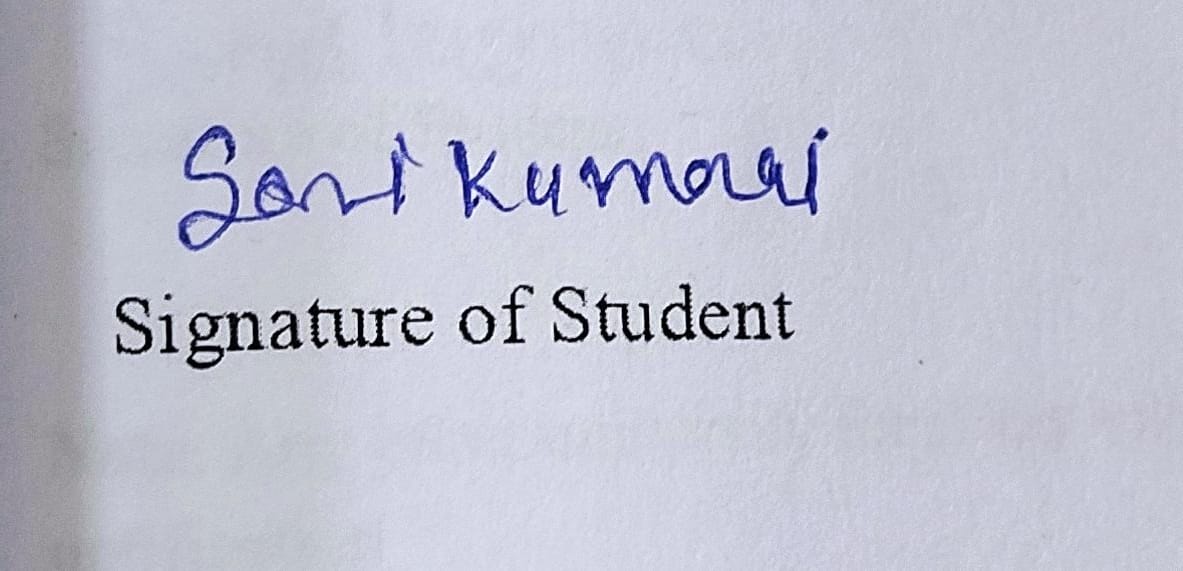 Soni Kumari
Signature of Student